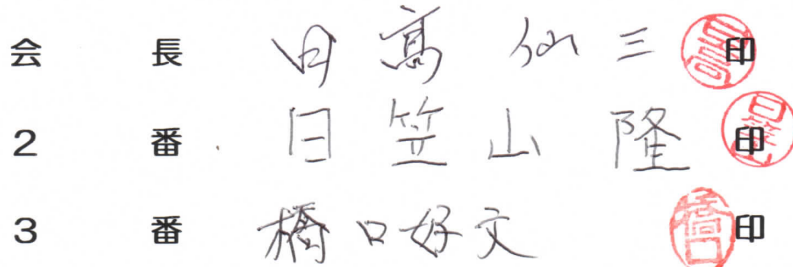 会長 日高仙三 印
2番 日笠山隆 印
3番 橋口好文 印